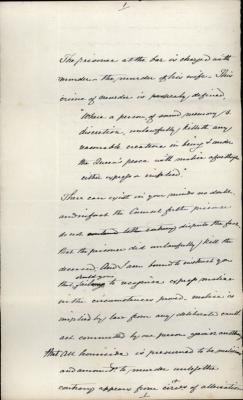 1
The prisoner at the bar is charged with
murder - the murder of his wife - This
crime of murder is properly defined,
"Where a person of sound memory &
discretion, unlawfully killeth any
reasonable creature in being & under
the Queen's peace with malice aforethought
either express or implied"
There can exist in your minds no doubt,
and in fact the Counsel for the prisoner
do not dispute the fact,
that the prisoner did unlawfully kill the
deceased. And I am bound to instruct you
that should you to recognize express malice
in the circumstances proved, malice is
implied by law from any deliberate cruel
act committed by one person against another
that all homicide is presumed to be malicious
and amount to murder until the
contrary appears from circ[st] of alleviation
1